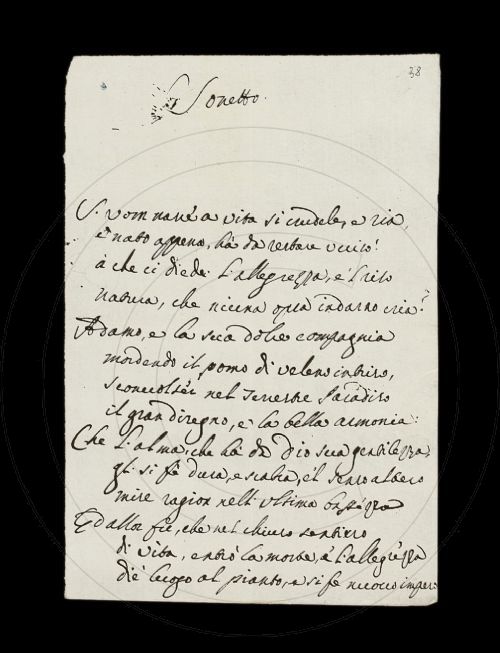 38
Sonetto
S'uom nasce a vita sì crudele, e ria,
e nato appena, hà da restare ucciso!
à che ci diede l'allegrezza, e l'riso
natura, che niuna opra indarno cria?
Adamo, e la sua dolce compagnia
mordendo il pomo di veleno intriso,
sconvolser nel Terrestre Paradiso
il gran disegno, e la bella armonia:
Che l'alma, che hà da Dio sua gentilezza,
gli si fè dura, e scabra, e'l senso altero
mise ragion nell'ultima bassezza
Ed allor fù, che nel chiuso sentiero
di vita, entrò la morte, e l'allegrezza
diè luogo al pianto, e si fe nuovo impero